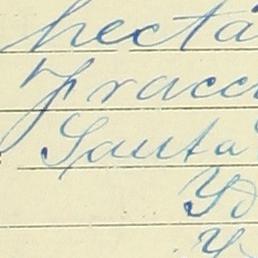 hectá
fracci
Santa
Yd
Y